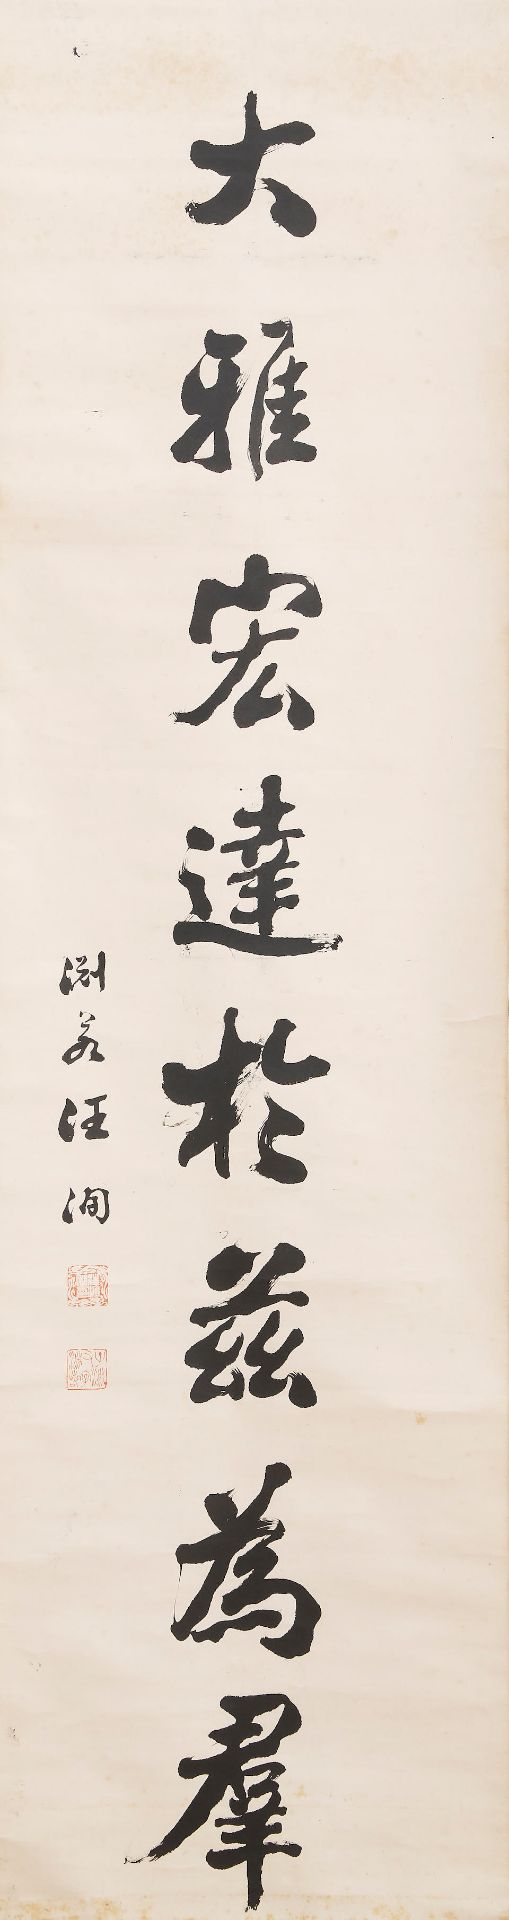 大雅宏達於茲為羣
淵若汪洵